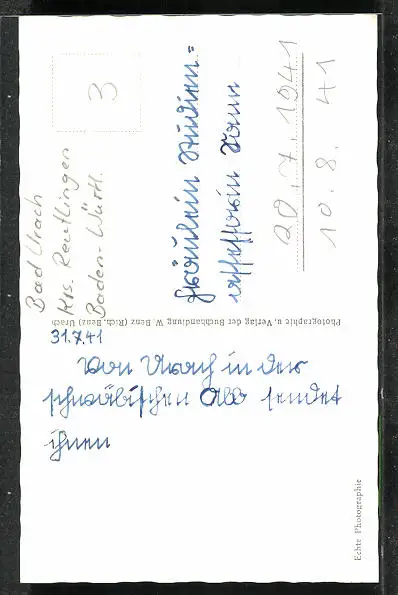 31.7.41
Von Urach in der
schwäbischen Alb sendet
ihnen
Fräulein Studien=
assessorin
20.7.1941
10.8.41
3
Bad Urach
Krs. Reutlingen
Baden-Württ.
Photographie u. Verlag der Buchhandlung W. Benz (Rich. Benz) Urach
Echte Photographie